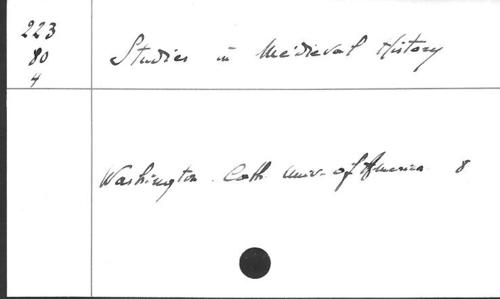 223
80
4
Studies in Medieval History
Washington. Cath. Univ. of America 8